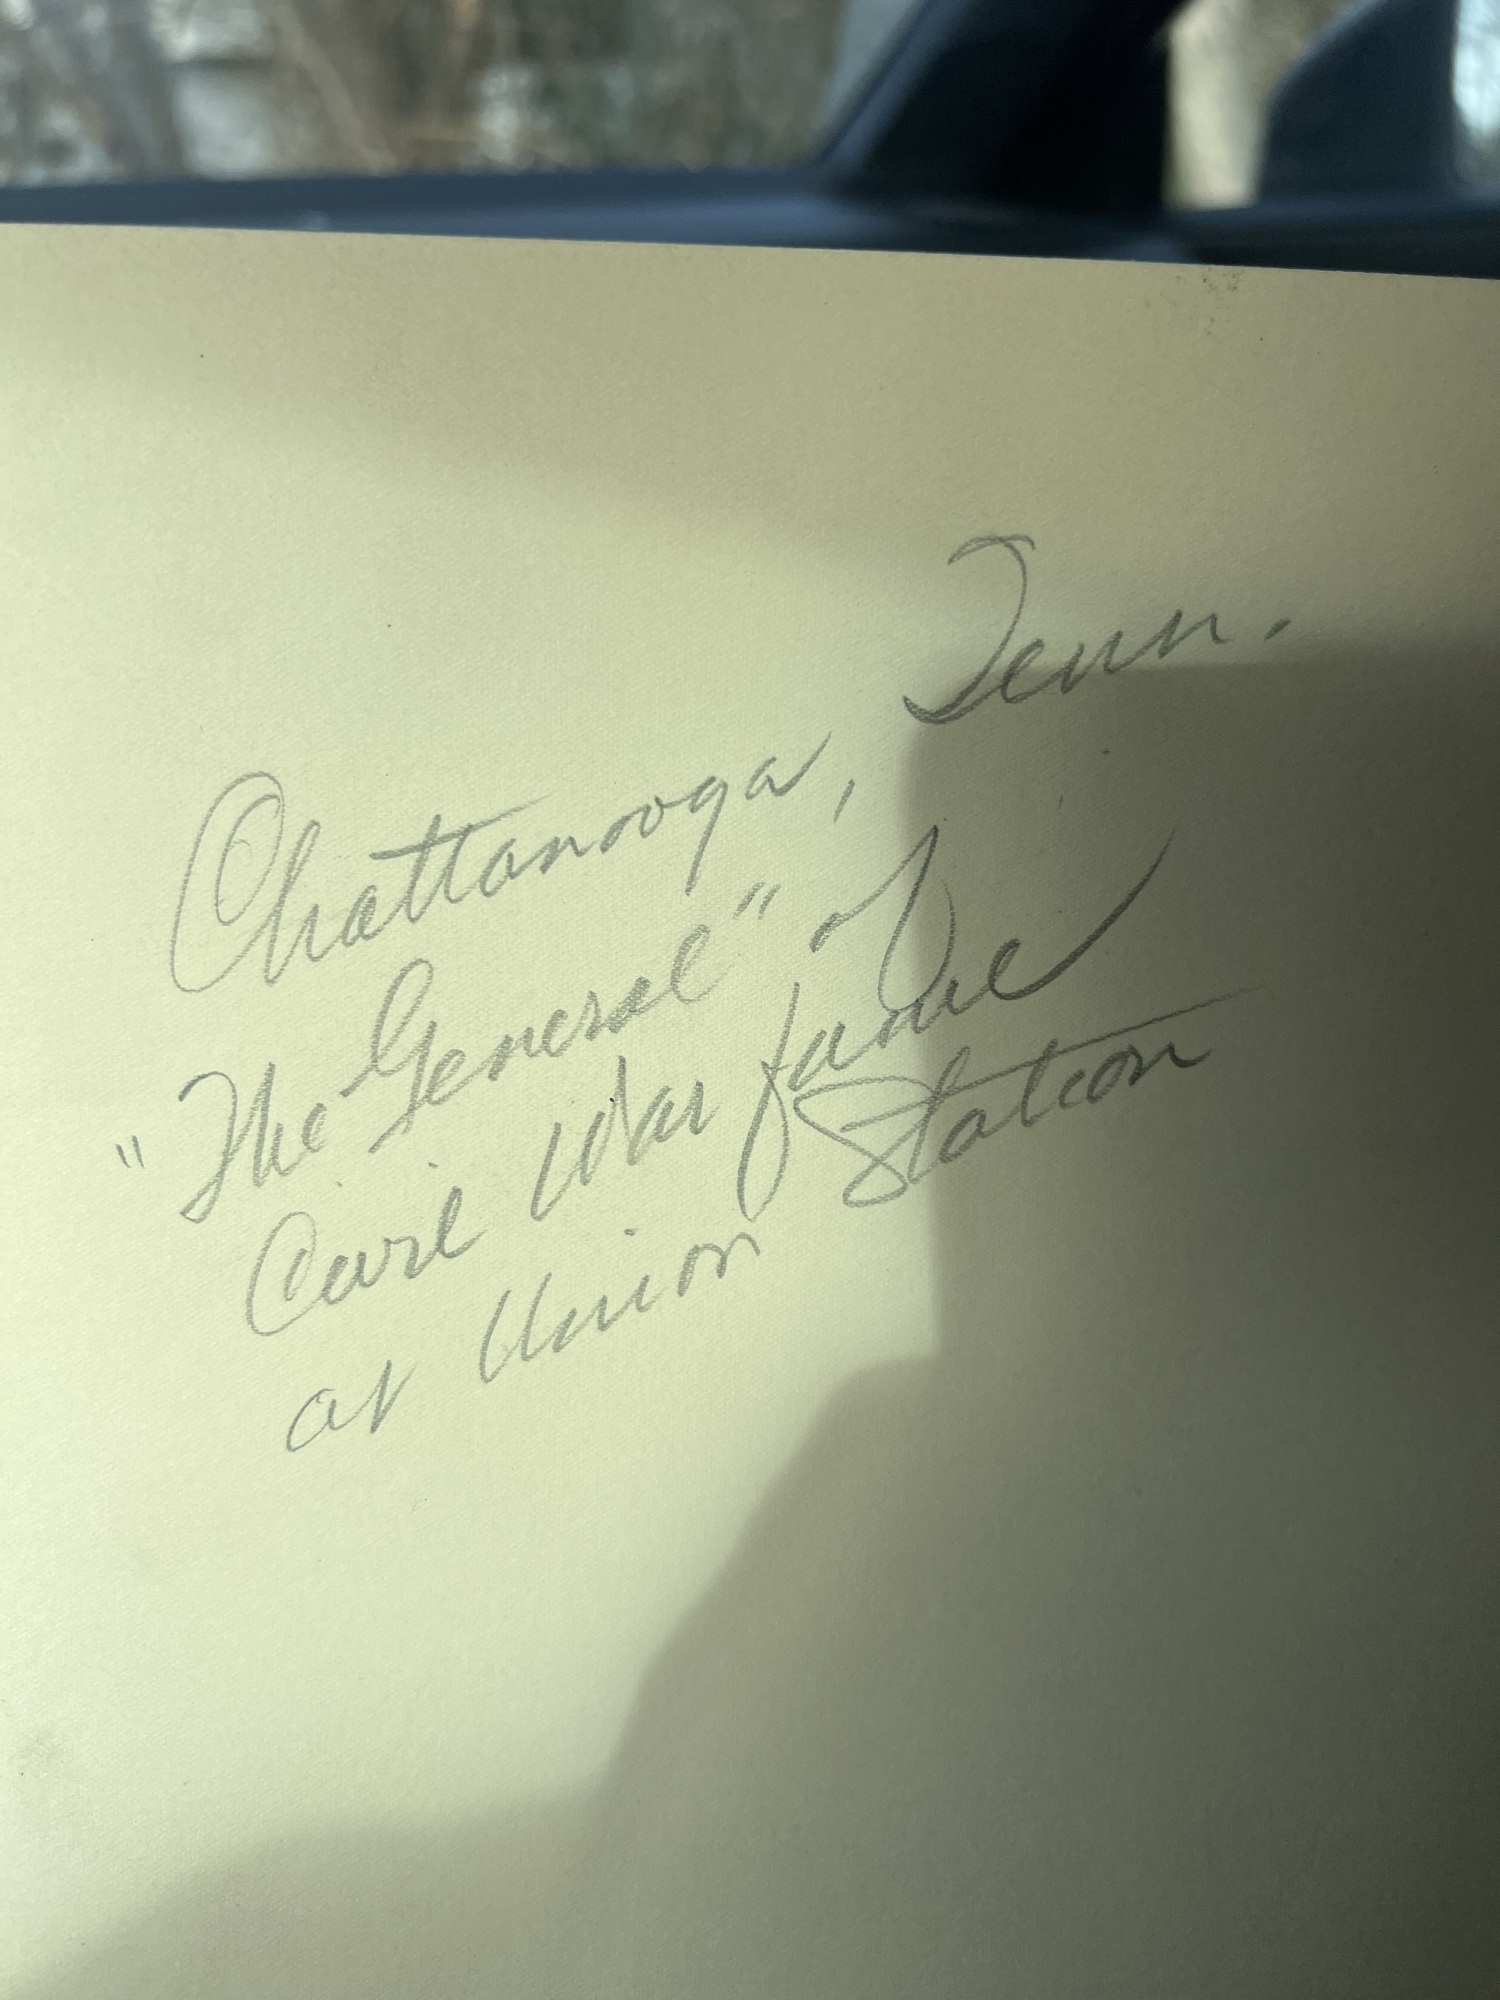 Chattanooga, Tenn.
"The General" of
Civil War fame
at Union Station